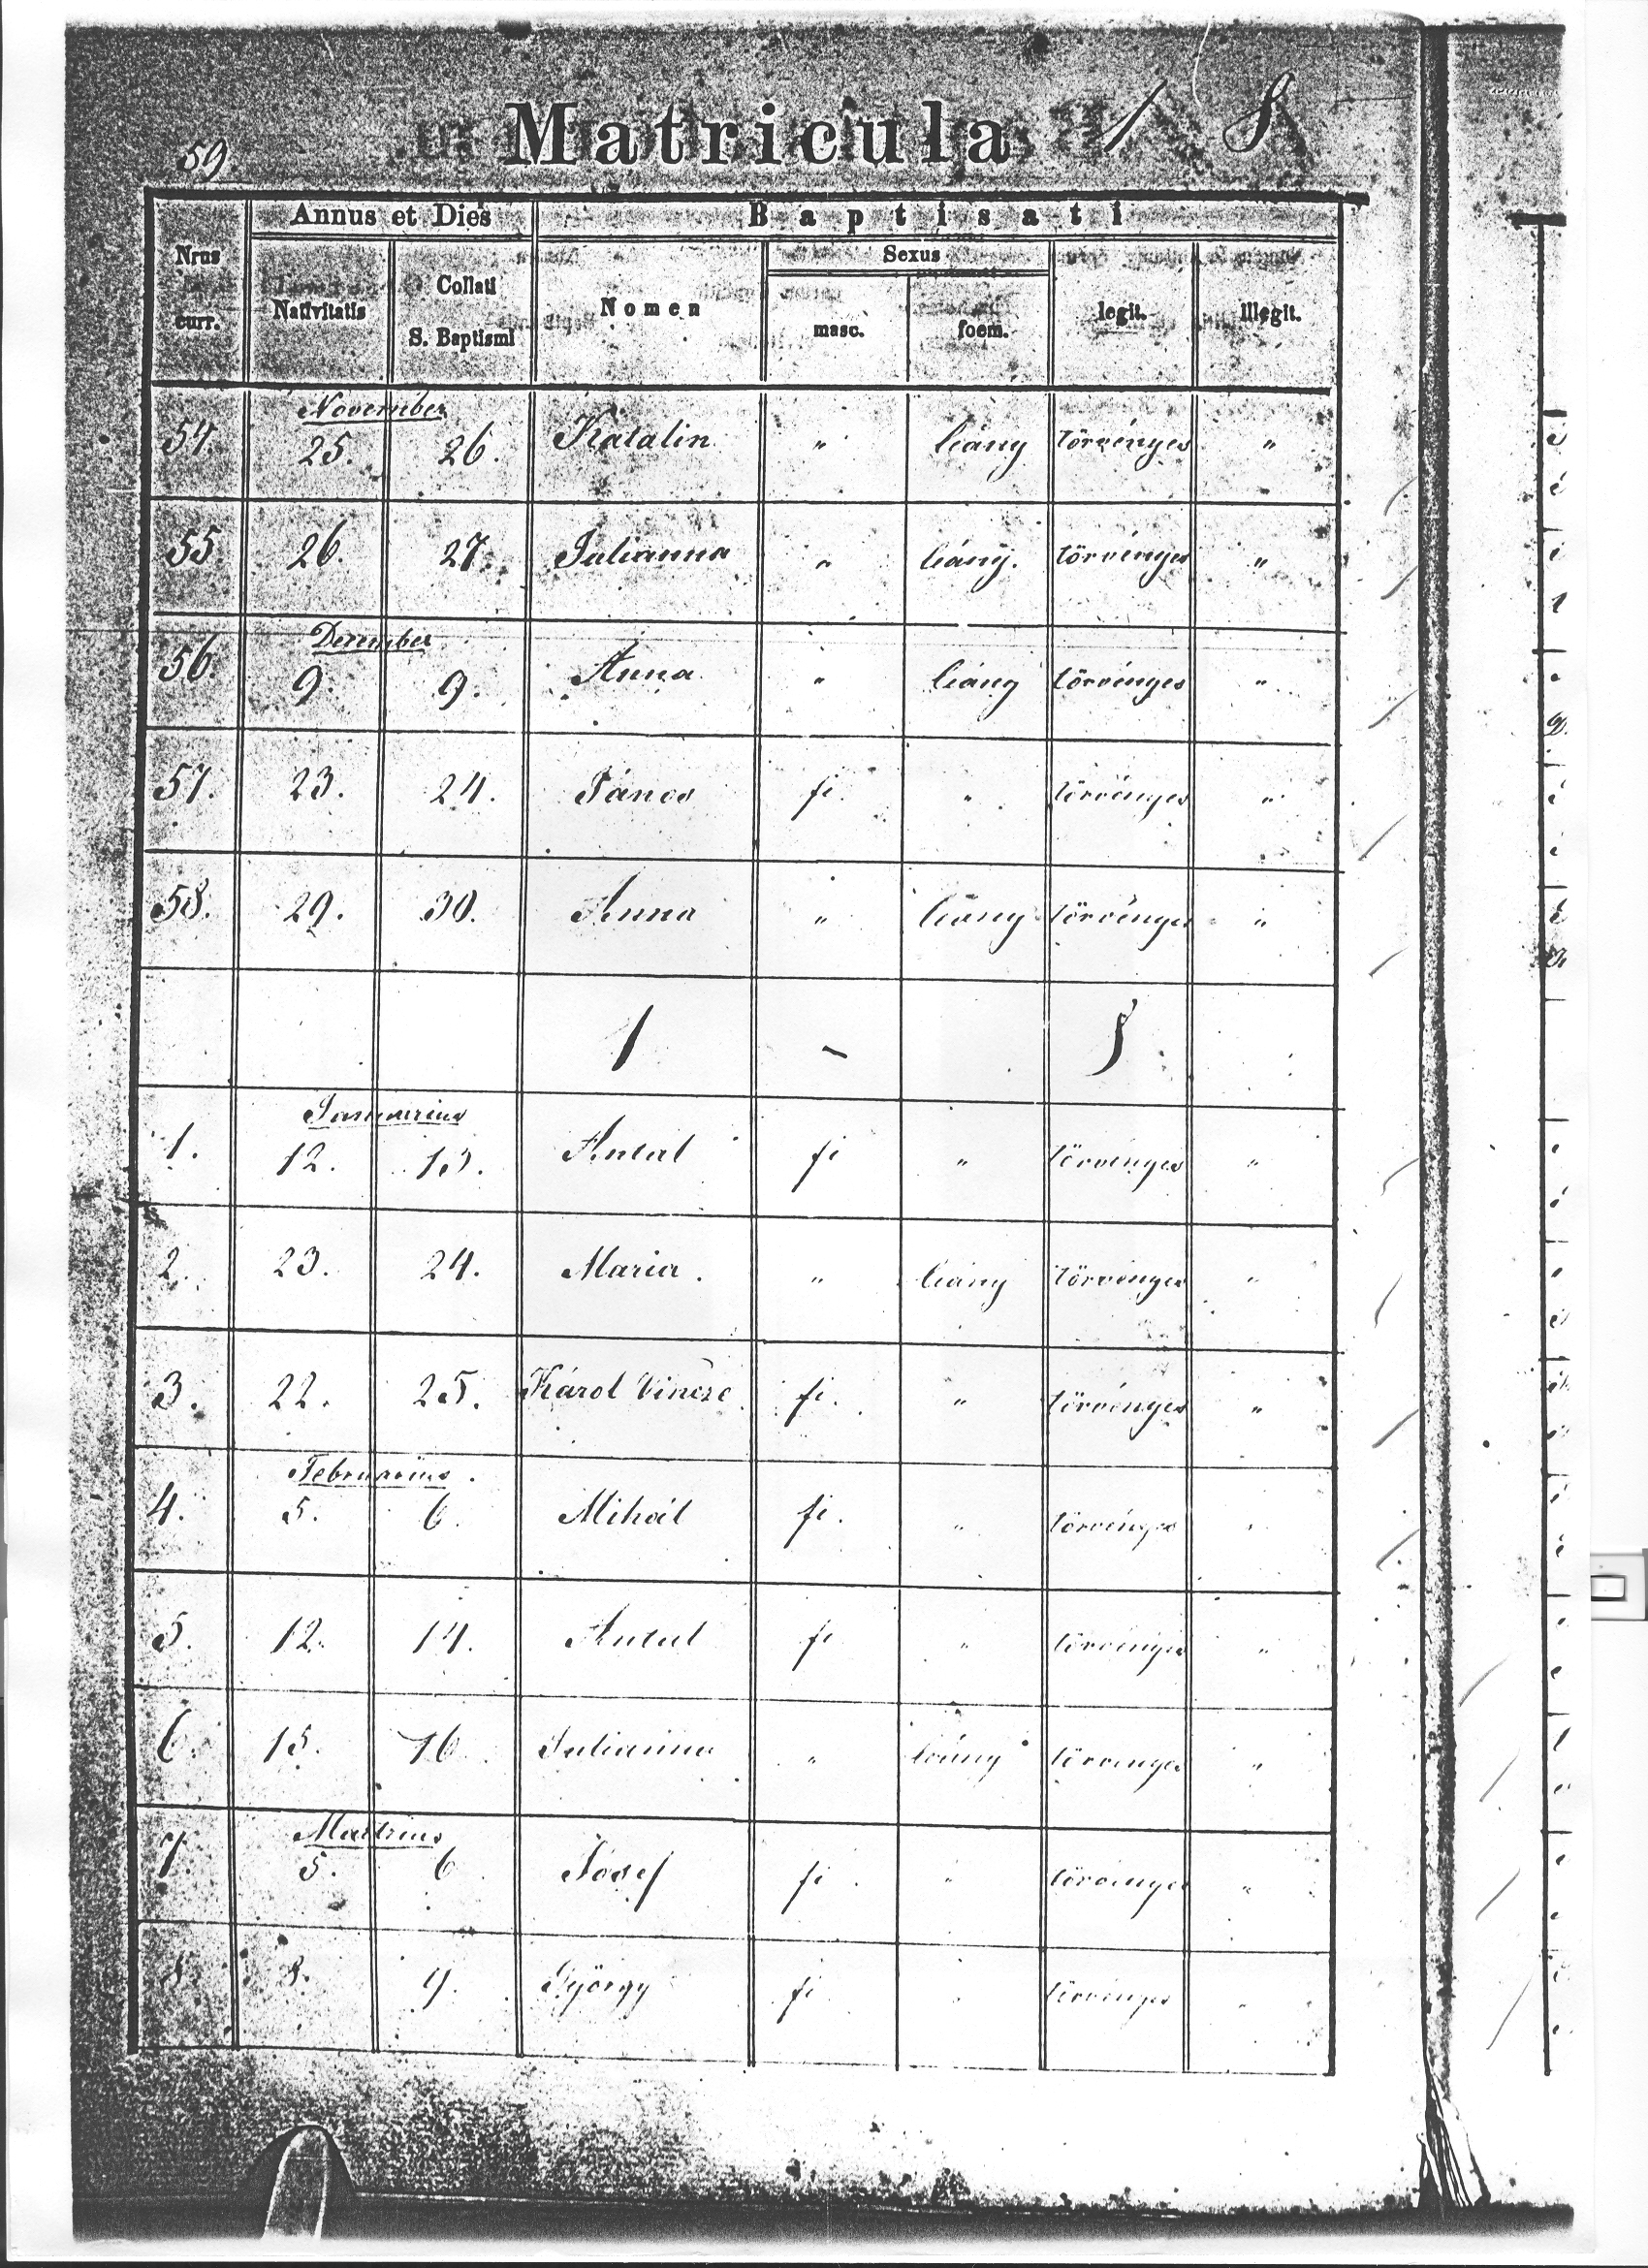 59. Matricula 1 8
Annus et Dies Baptisati
Nrus curr. Nativitatis Collati S. Baptismi Nomen Sexus legit. illegit.
masc. foem.
November
54. 25. 26. Katalin „ leány törvényes „
55. 26. 27. Julianna „ leány. törvényes „
December
56. 9. 9. Anna „ leány törvényes „
57. 23. 24. János fi. „ törvényes „
58. 29. 30. Anna „ leány törvényes „
1 - 8
Januarius
1. 12. 13. Antal fi „ törvényes „
2. 23. 24. Maria. „ leány törvényes „
3. 22. 25. Károl Vincze fi. „ törvényes „
Februarius.
4. 5. 6. Mihál fi. „ törvényes „
5. 12. 14. Antal fi „ törvényes „
6. 15. 16. Julianna „ leány törvényes „
Martius
7. 5. 6 Josef fi „ törvényes „
8 8. 9. György fi „ törvényes „